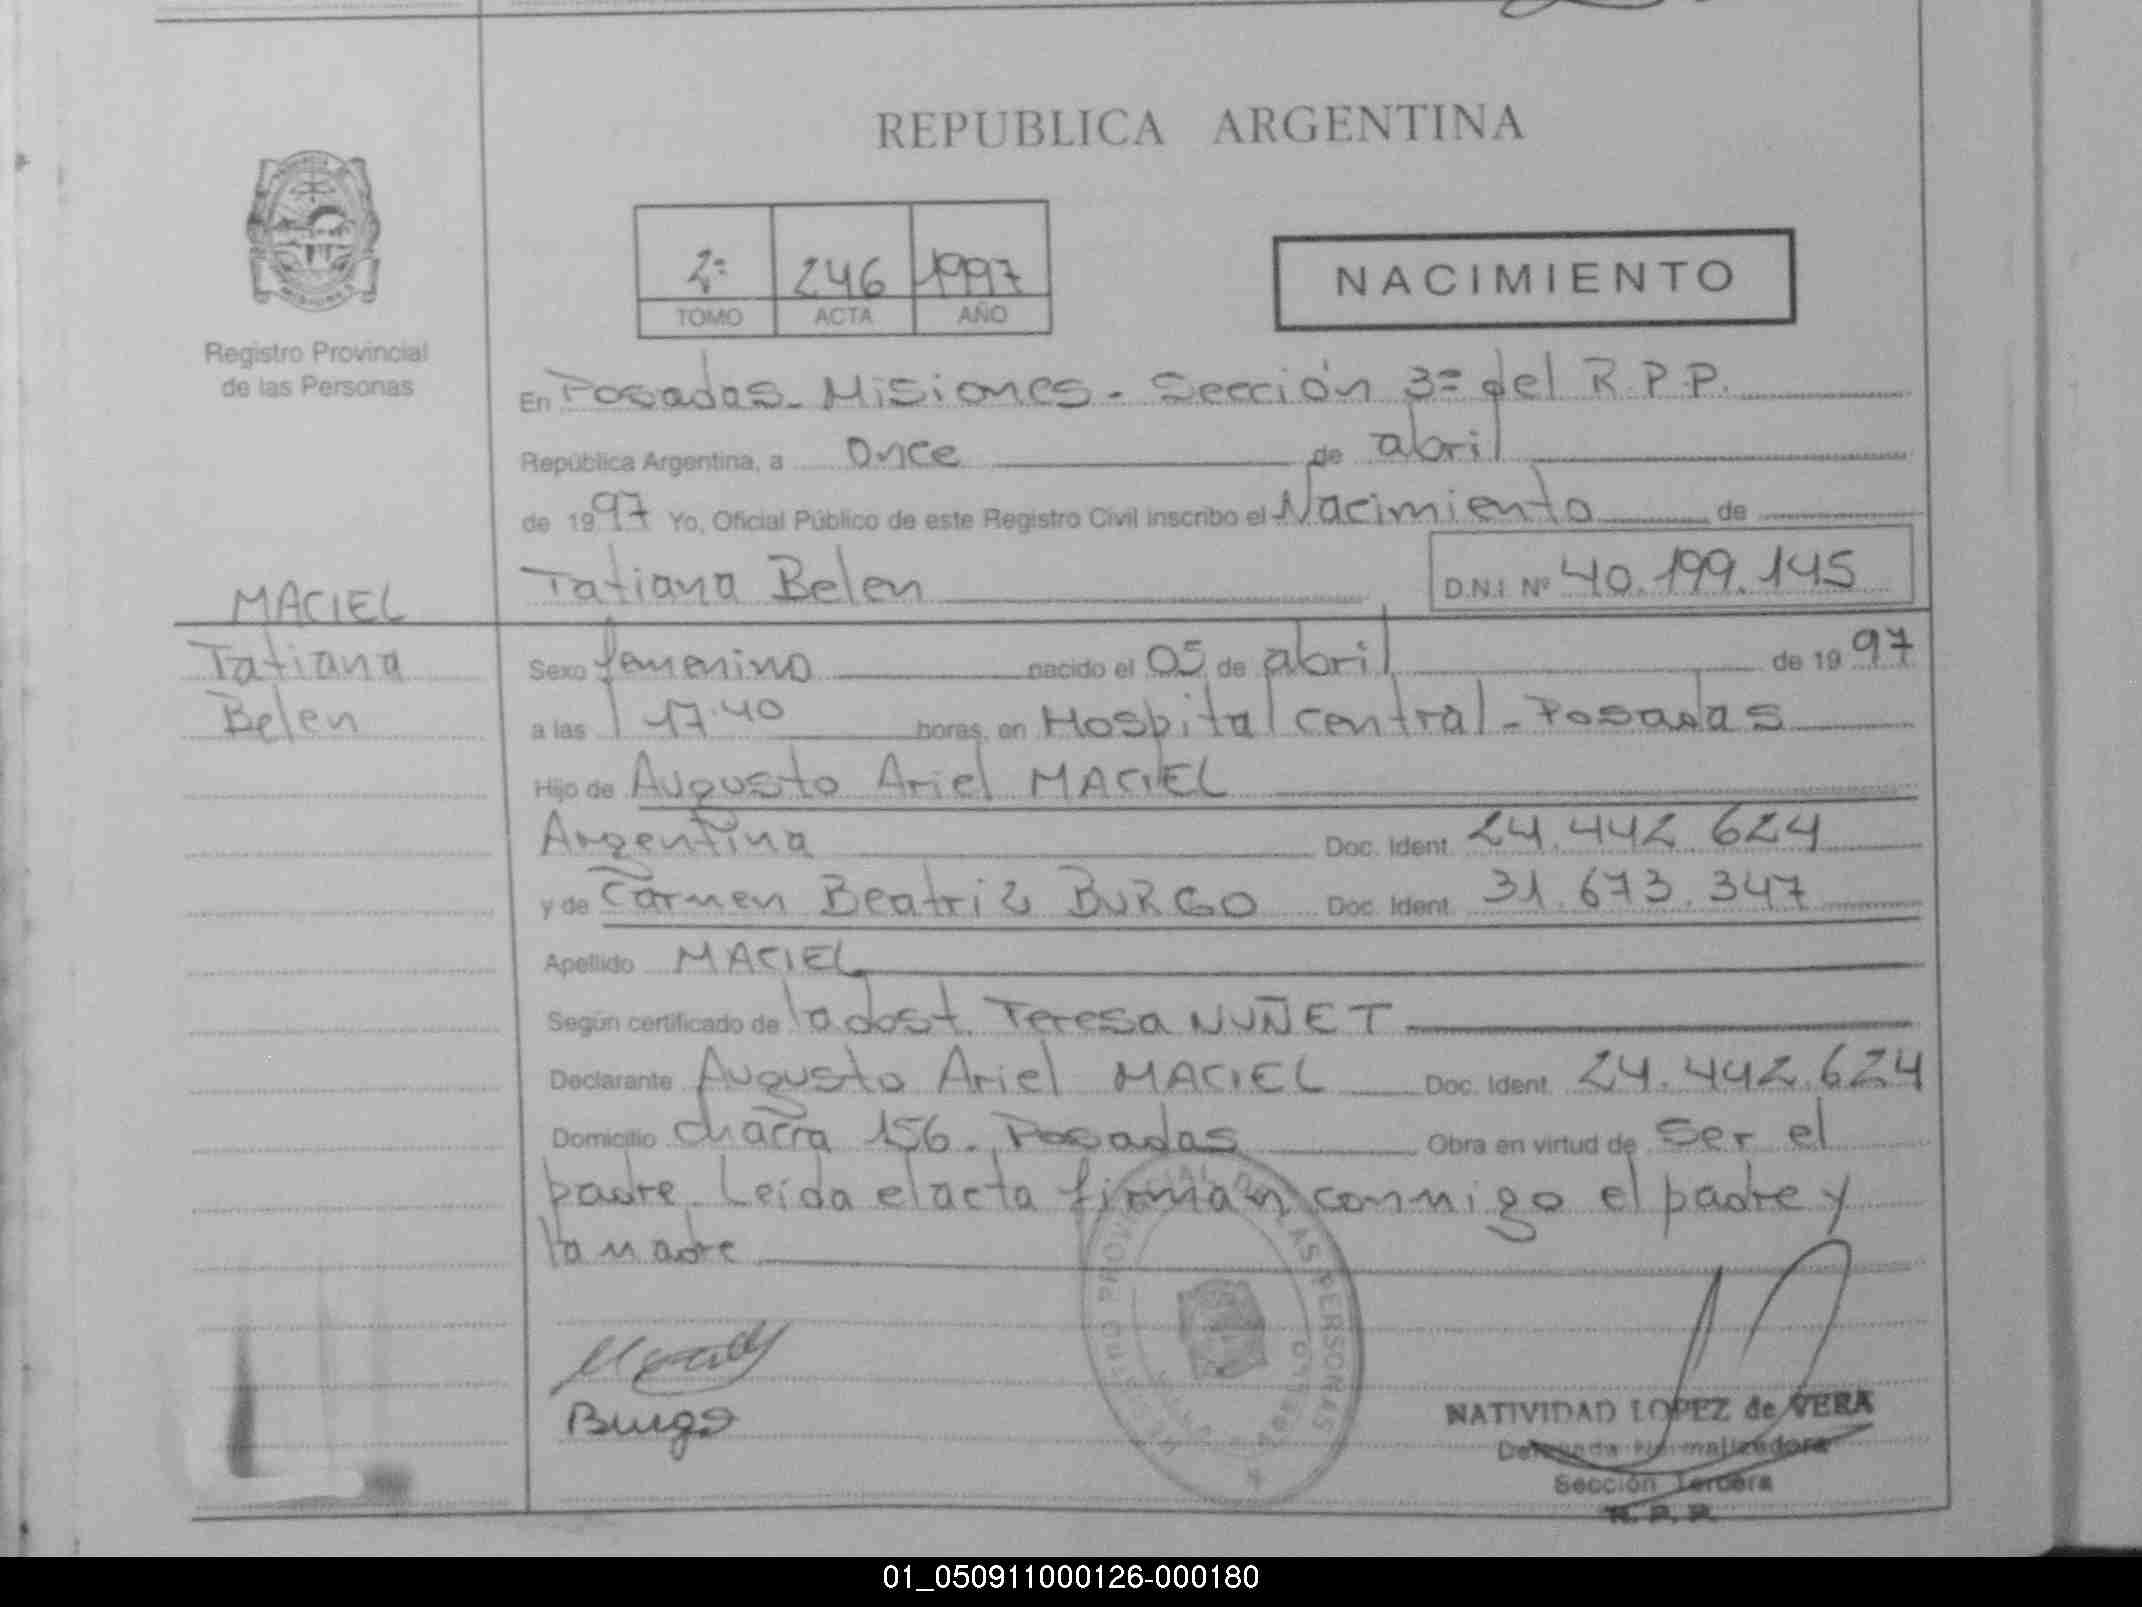 REPUBLICA ARGENTINA
2º 246 1997
TOMO ACTA AÑO
NACIMIENTO
Registro Provincial
de las Personas
En Posadas - Misiones - Sección 3º del R.P.P.
República Argentina, a once de abril
de 1997 Yo, Oficial Público de este Registro Civil inscribo el Nacimiento de
Tatiana Belen D.N.I. Nº 40.199.145
MACIEL
Tatiana
Belen
Sexo femenino nacido el 05 de abril de 1997
a las 17.40 horas, en Hospital central - Posadas
Hijo de Augusto Ariel MACIEL
Argentina Doc. Ident. 24.442.624
y de Carmen Beatriz BURGO Doc. Ident. 31.673.347
Apellido MACIEL
Según certificado de la obst. Teresa NUÑET
Declarante Augusto Ariel MACIEL Doc. Ident. 24.442.624
Domicilio chacra 156. Posadas Obra en virtud de ser el
padre. Leída el acta firman conmigo el padre y
la madre
Burgo
PERSONAS
NATIVIDAD LOPEZ de VERA
Delegada Normalizadora
Sección Tercera
R. P. P.
01_050911000126-000180